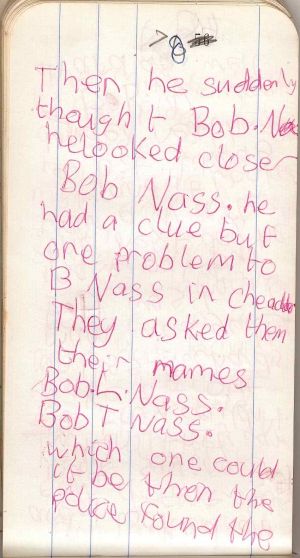 78
Then he suddenly
thought Bob. Nass
helooked close
Bob Nass. he
had a clue but
one problem to
B Nass in cheader
They asked them
their mames
Bob.L. Nass.
Bob T Nass.
which one could
it be then the
police found the